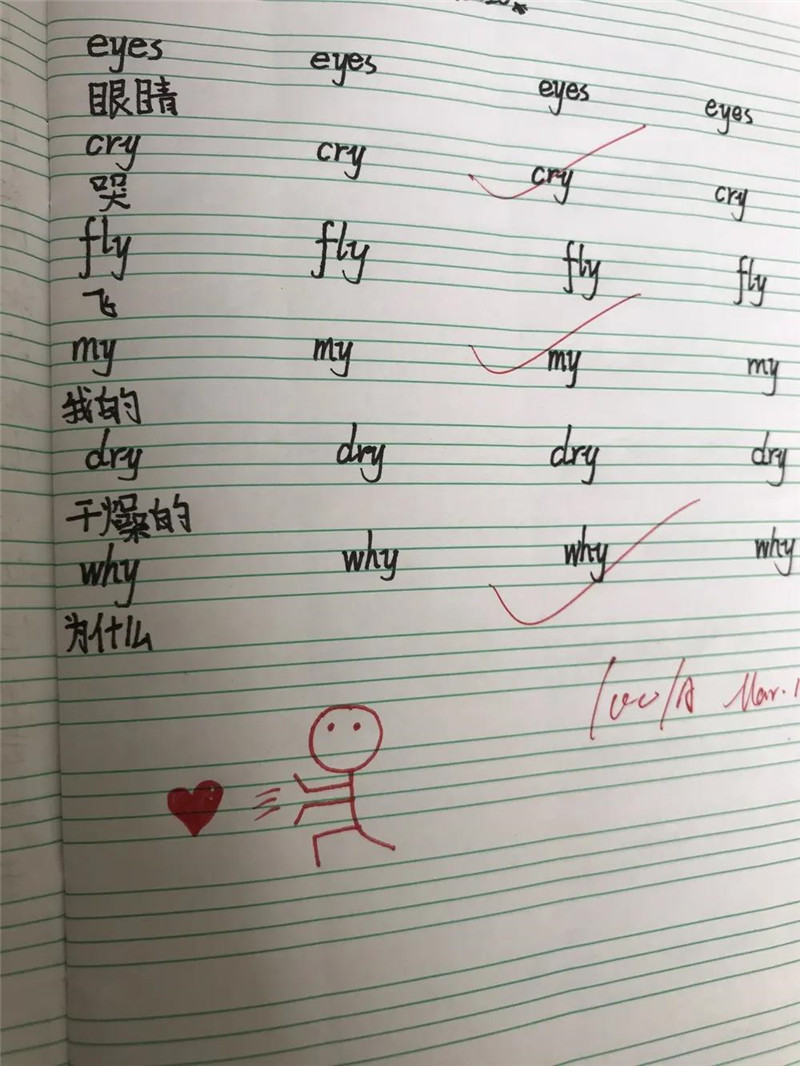 eyes eyes eyes eyes
眼睛
cry cry cry cry
哭
fly fly fly fly
飞
my my my my
我的
dry dry dry dry
干燥的
why why why why
为什么
Mar.1